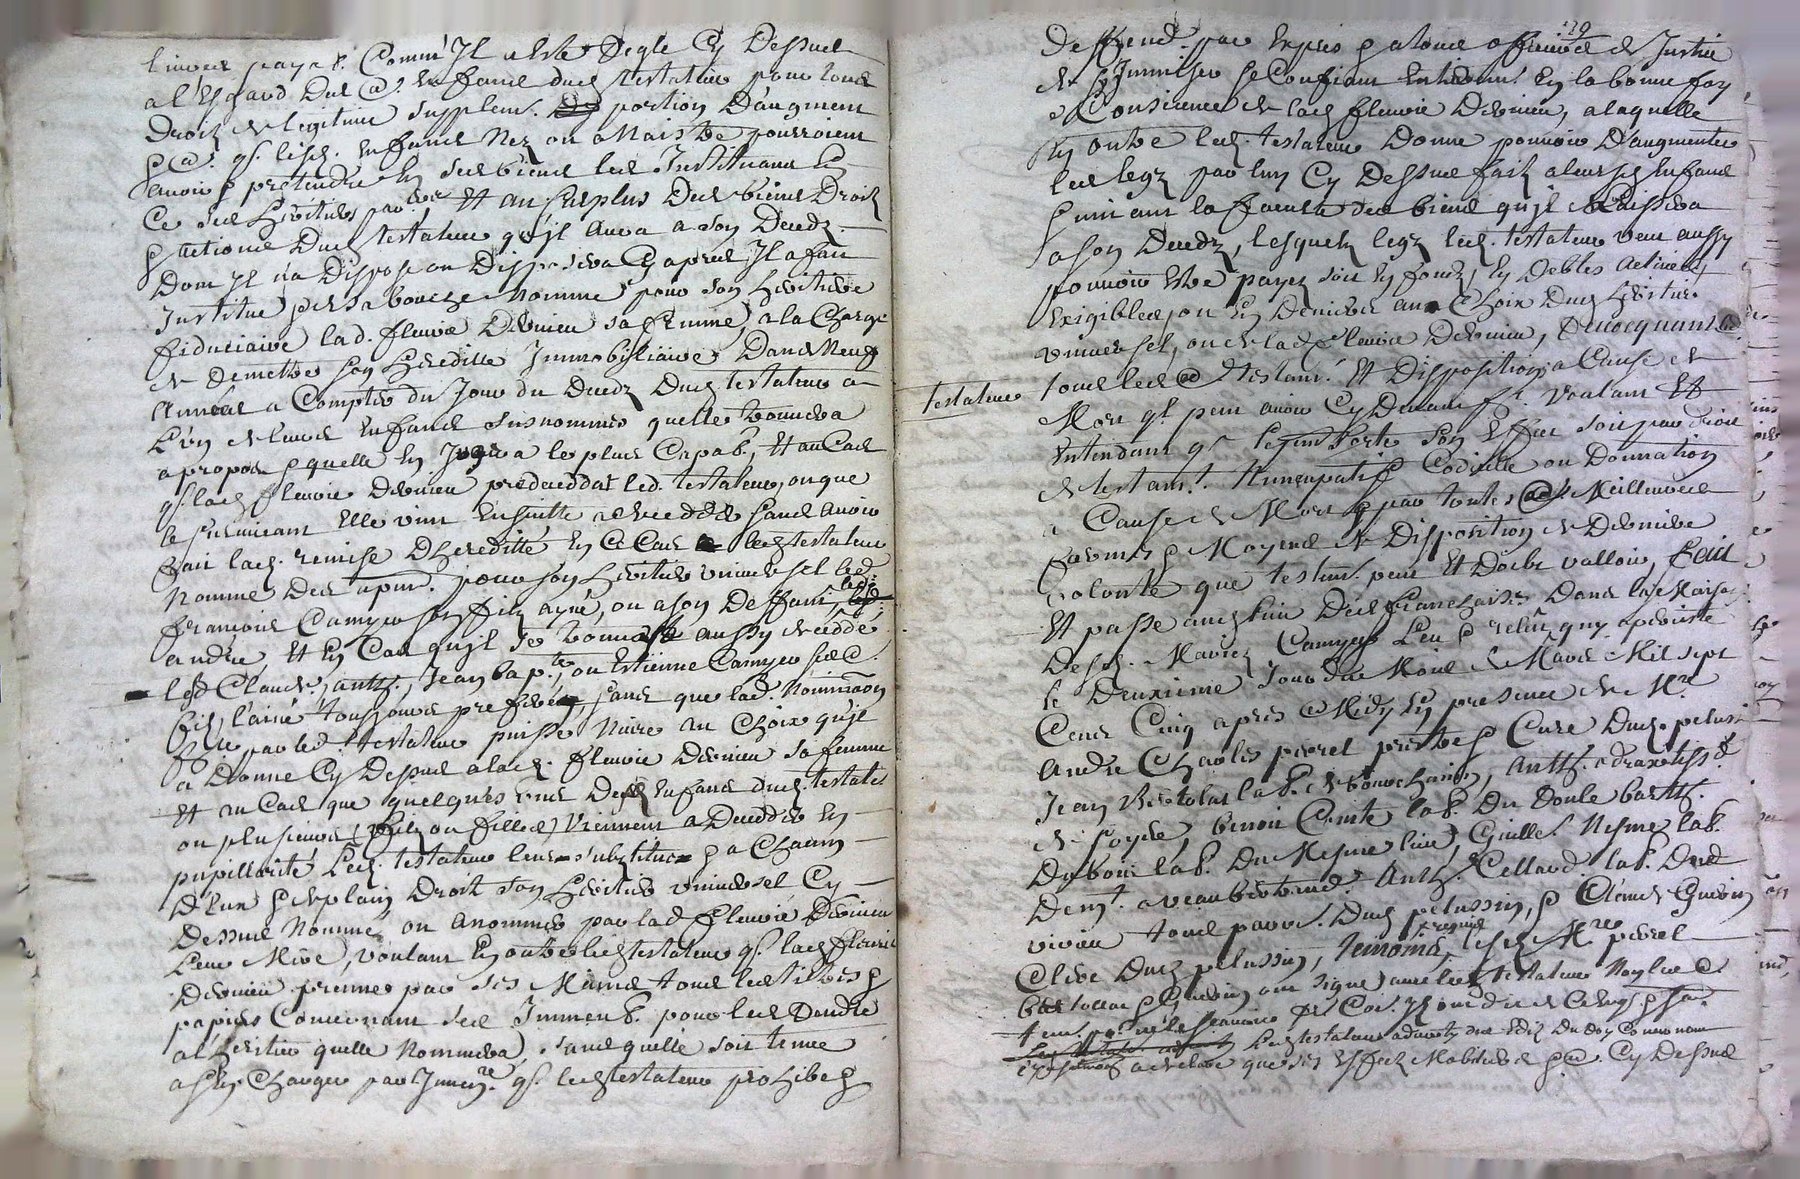 l'inven payer. Comm'Il a esté Reglé Cy Dessus
a l'Esgard Des @. Enfans dud. testateur pour tous
Droitz de legitime supplem. portion D'augment
p @. q. lesd. Enfans Nez ou a Naistre pourroient
avoir & pretendre En ses biens les Instituant En
Ce ses héritiers par. Et au surplus Des biens Droitz
& actions Dud testateur qu'Il aura a son Decedz
Dont Il n'a Disposé ou Disposera Cy apres Il a fait
Institué per sa bouche Nommé pour son héritiere
fiduciaire lad. fleurie Dervieu sa femme, a la Charge
de Remettre son heredité Immobiliaire Dans Neuf
Années a Compter du Jour du Decedz Dud. testateur a
L'un de leurs Enfans susnommés quelle trouvera
a propos & quelle En Jugera le plus Capab., Et au Cas
q. lad. fleurie Dervieu predecedat led. testateur, ou que
le survivant Elle vint Ensuitte a deceder sans avoir
fait lad. remise D'heredité En Ce Cas led. testateur
Nomme Des apnt. pour son héritier universel led.
françois Camyer son filz ayné, ou a son Deffaut, led.
andré, Et En Cas qu'Il se trouvast aussy decedé
led Claude, anth., Jean bap.te, ou Estienne Camyer ses @.
filz, l'ainé tousjours preferé, sans que lad. Nomina͠on
faite par led. testateur puisse Nuire au Choix qu'Il
a Donné Cy Dessus a lad. fleurie Dervieu sa femme
Et au Cas que quelques uns Desd. Enfans dud. testateur
ou plusieurs (filz ou filles) Viennent a Deceder En
pupillarité Led. testateur leur substitue & a Chacun
D'Eux de plain Droit son héritier universel Cy
Dessus Nommé ou a nommer par lad fleurie Dervieu
Leur Mère, voulant En outre led. testateur q. lad fleurie
Dervieu prenne par ses Mains tous les titres &
papiers Concernant ses Immeub. pour les Rendre
a l'héritier quelle Nommera, sans quelle soit tenue
a s'En Charger par Inven.re q. led. testateur prohibe &
Deffend par Exprès & a tous officiers de Justice
de s'y Immisser se Confiant Entierem. En la bonne foy
& Consience de lad fleurie Dervieu, a laquelle
En outre led. testateur Donne pouvoir D'augmenter
les legz par luy Cy Dessus faitz a leursd. Enfans
suivant la faculté des biens qu'Il délaissera
a son Decedz, lesquelz legz led. testateur veut aussy
pouvoir Estre payez soit En fondz, En Debtes actives,
Exigibles, ou En Deniers au Choix Dud. héritier
universel, ou de lad fleurie Dervieu, Revocquant
testateur
tous les @ testam. Et Dispositions a Cause de
Mort q. peut avoir Cy Devant f. Voulant Et
Entendant q. le présent sorte son Effet soit par Droit
de testam. Nuncupatif Codicille ou Donnation
a Cause de Mort & par toutes @ Meilleures
formes & Moyens de Disposition de Derniere
volonté que testam. peut Et Doibt valloir, Fait
Et passé au lieu Des franchaises Dans la Maison
Desd. Mariez Camyer Leu & relûe qu'y a persisté
le Deuxieme Jour du Mois de Mars Mil sept
Cens Cinq après Midy En presence de M.re
André Charles perrel prestre & Curé Dud. pelussin
Jean Bertolat lab. de bourchany, Anth. odrax tiss.d
de soyde, benoit Comte lab. Du Doule barth.
Duboin lab. Du Mesme lieu, Guille. Nesme lab.
Dem.t a veaubertrand, Anth. Cellard lab. Dud
vivieu tous parois. Dud. pelussin, & Claude Guerin
Clerc Dud. pelussin, temoins requis, lesd. M.re perrel
bertollat & Guerin ont signé avec led. testateur
Led testateur adverty des Edits Du Roy Concernant
a declaré que ses Effetz Mobiliers & @ Cy Dessus